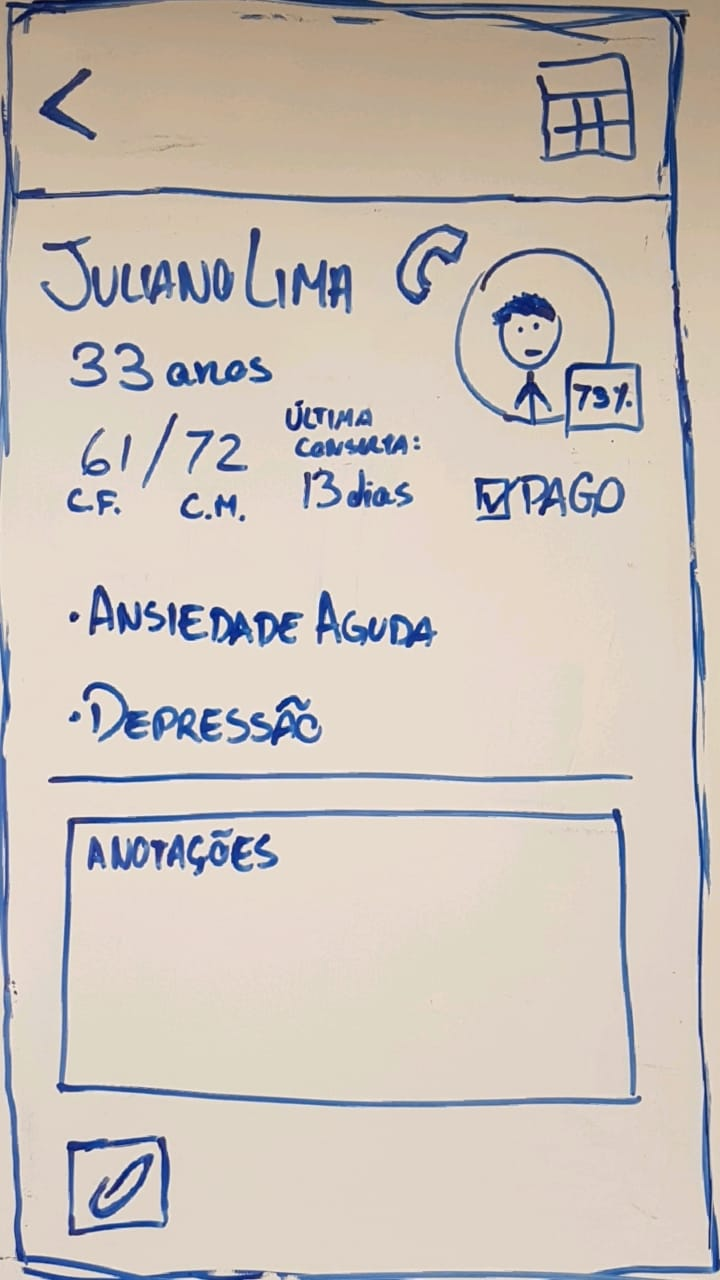 JULIANO LIMA
33 anos
73%
61/72
C.F. C.M.
ÚLTIMA
CONSULTA:
13 dias
PAGO
• ANSIEDADE AGUDA
• DEPRESSÃO
ANOTAÇÕES